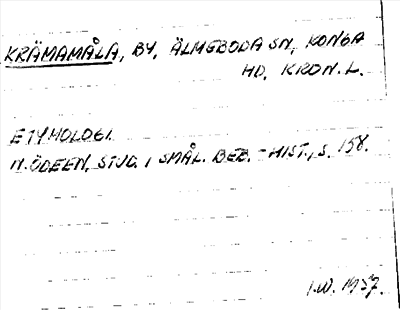 KRÄMAMÅLA, BY, ÄLMEBODA SN, KONGA
HD, KRON. L.
ETYMOLOGI.
N. ÖDEEN, STUD. I SMÅL. BEB. - HIST., S. 158.
I.W. 1957.